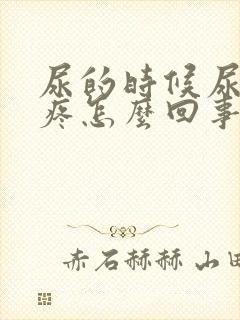 尿的時候尿
疼怎麼回事
赤石赫赫 山田